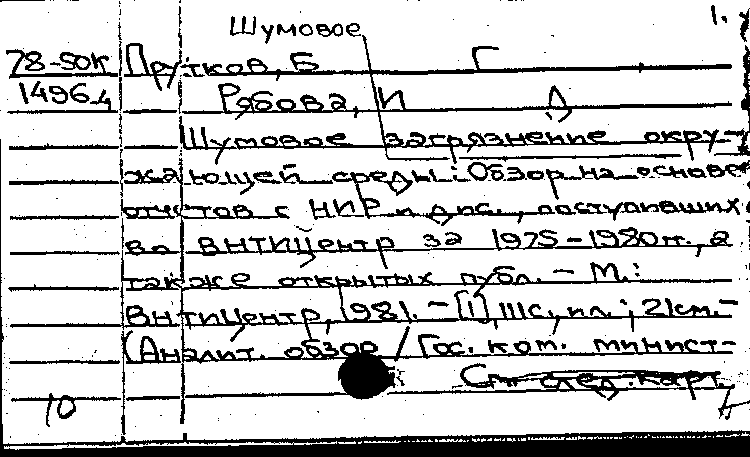 Шумовое
1.
78-50к Прутков, Б Г
1496-4 Рябова, И Д
Шумовое загрязнение окру-
жающей среды: Обзор на основе
отчетов с НИР и дис., поступивших
во ВНТИЦентр за 1975-1980гг., а
также открытых публ. - М.:
ВНТИЦентр, 1981. - [1], IIIс., ил.; 21см. -
(Аналит. обзор / Гос. ком. минист-
См. след. карт.
10